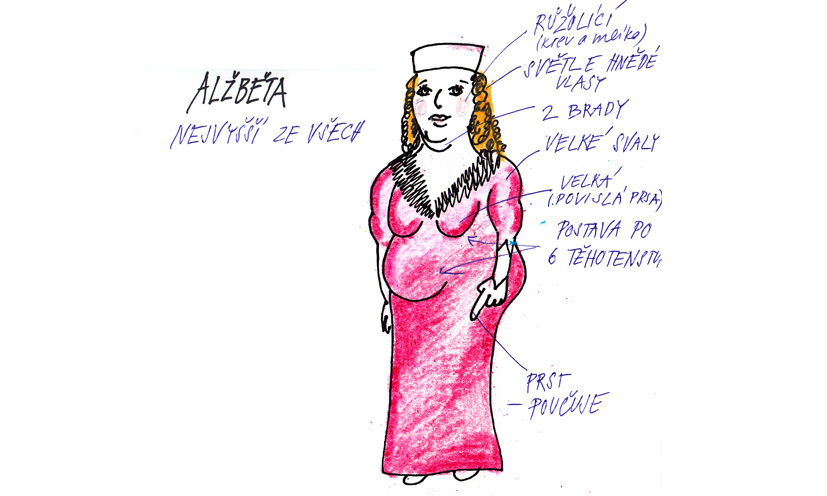 ALŽBĚTA
NEJVYŠŠÍ ZE VŠECH
RŮŽOLÍCÍ
(krev a mléko)
SVĚTLE HNĚDÉ
VLASY
2 BRADY
VELKÉ SVALY
VELKÁ
(POVISLÁ PRSA)
POSTAVA PO
6 TĚHOTENSTV
PRST
– POUČUJE